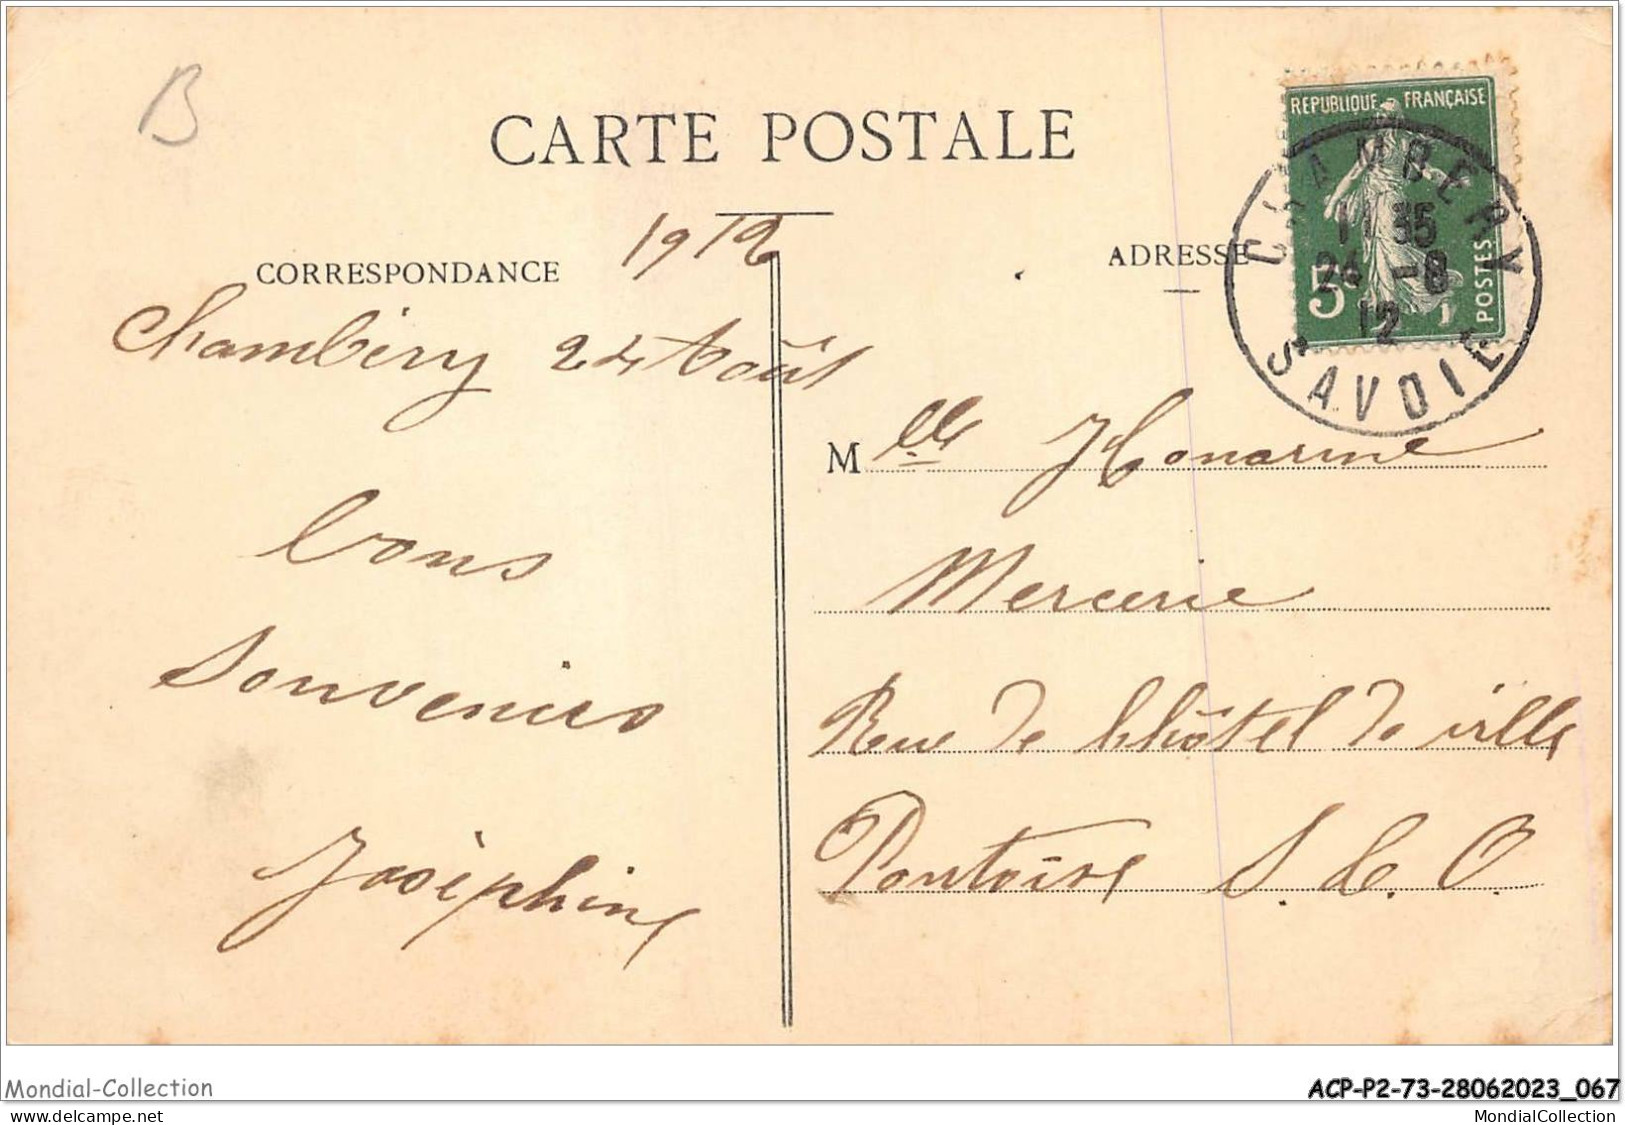 B
CARTE POSTALE
CORRESPONDANCE
1912
Chambéry 24 Août
bons
souvenirs
Joséphine
ADRESSE
RÉPUBLIQUE FRANÇAISE
5c
POSTES
CHAMBERY
11 35
24 -8
12
SAVOIE
Mlle Honorine
Mercerie
Rue de l'hôtel de ville
Pontoise S. &. O.
Mondial-Collection
ACP-P2-73-28062023_067
www.delcampe.net
MondialCollection